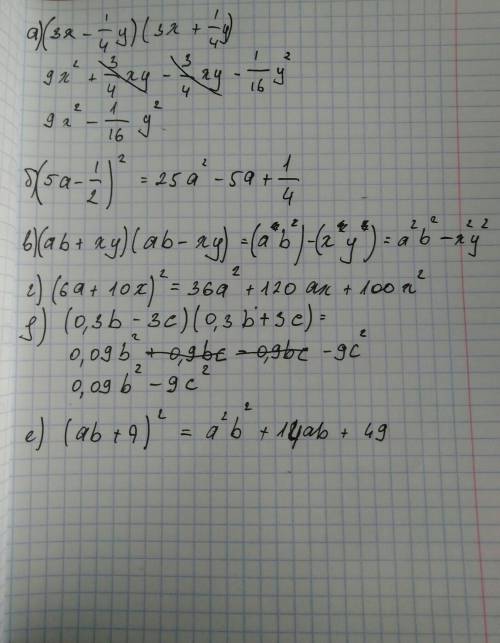 а)(3x - 1/4 y)(3x + 1/4 y)
9x² + 3/4 xy - 3/4 xy - 1/16 y²
9x² - 1/16 y²
б)(5a - 1/2)² = 25a² - 5a + 1/4
в)(ab + xy)(ab - xy) = (a²b²) - (x²y²) = a²b² - x²y²
г) (6a + 10x)² = 36a² + 120ax + 100x²
д) (0,3b - 3c)(0,3b + 3c) =
0,09b² + 0,9bc - 0,9bc - 9c²
0,09b² - 9c²
е) (ab + 7)² = a²b² + 14ab + 49